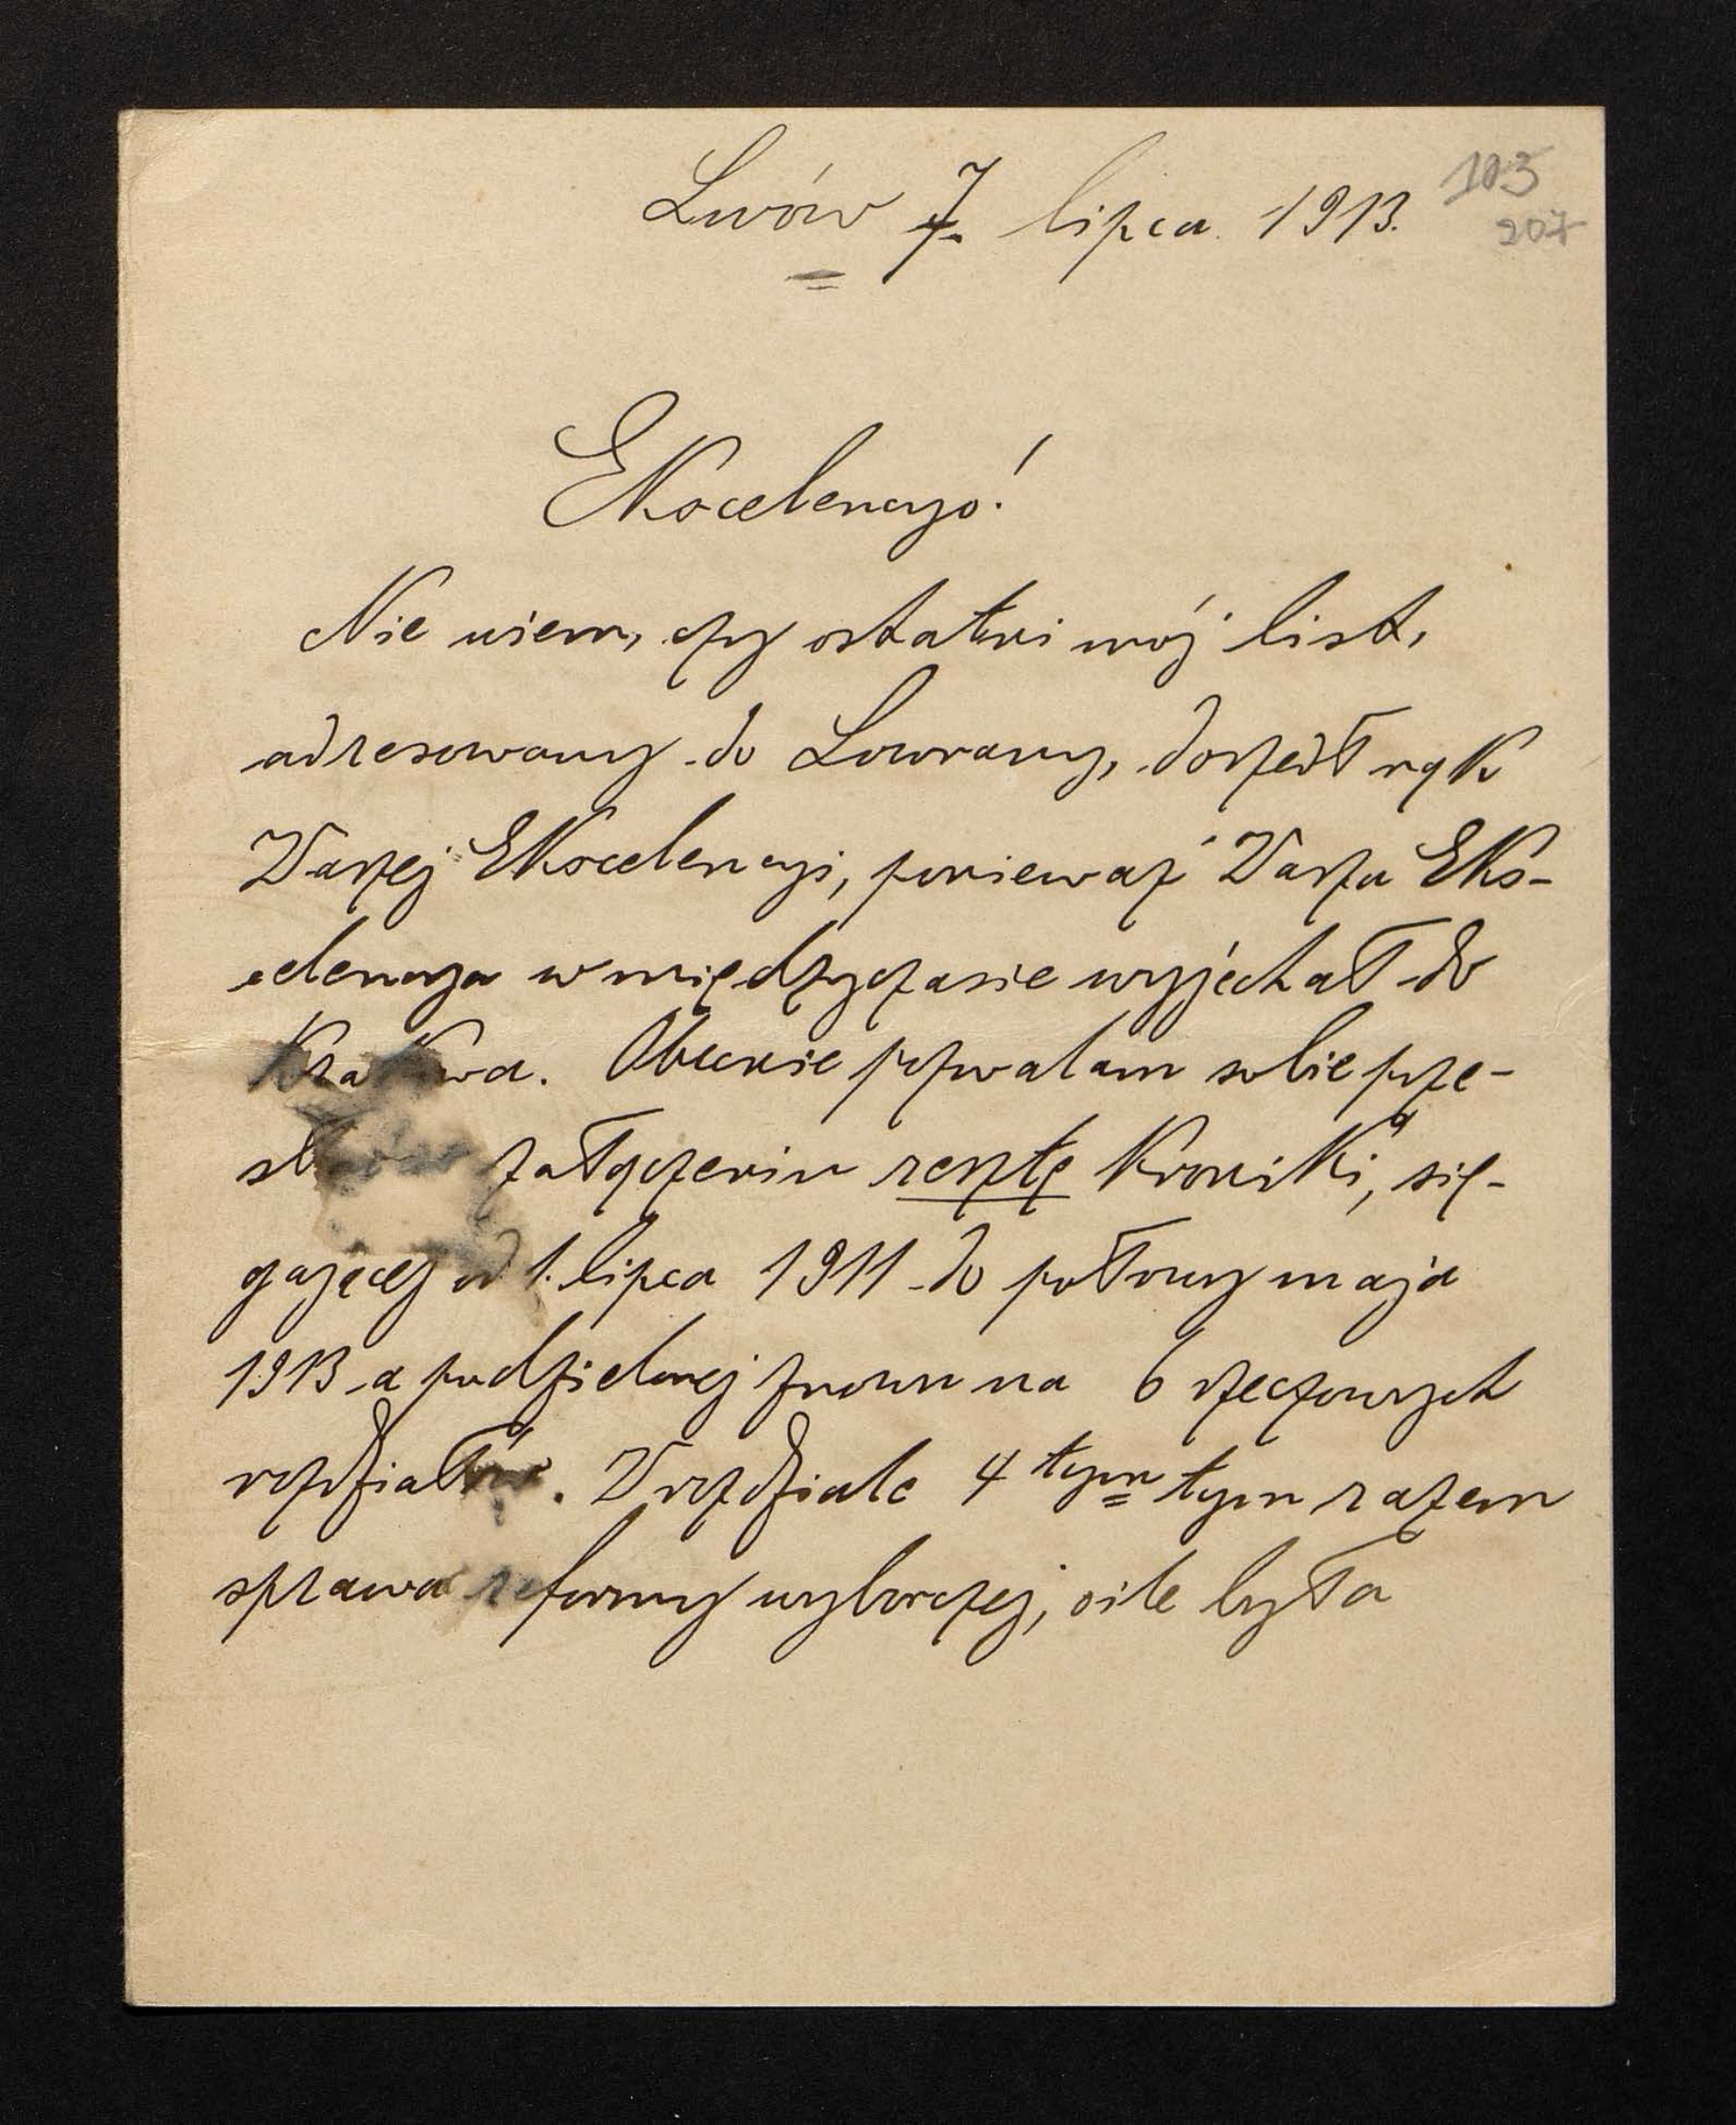 Lwów 7. lipca 1913.
103
207
Ekscelencyo!
Nie wiem, czy ostatni mój list,
adresowany do Lovrany, doszedł rąk
Waszej Ekscelencyi, ponieważ Wasza Eks-
celencya w międzyczasie wyjechał do
Krakowa. Obecnie pozwalam sobie prze-
w załączeniu resztę Kroniki, się-
gającej od 1. lipca 1911 do połowy maja
1913 a podzielonej znowu na 6 rzeczowych
rozdziałów. W rozdziale 4tym tym razem
sprawa reformy wyborczej, o ile była